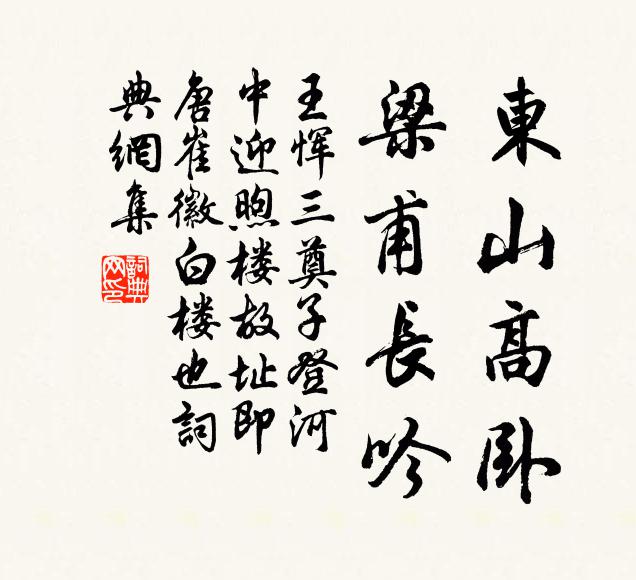 東山高臥
梁甫長吟
王惲三奠子登河
中迎煦楼故址即
唐崔徽白楼也詞
典網集
詞典
网印